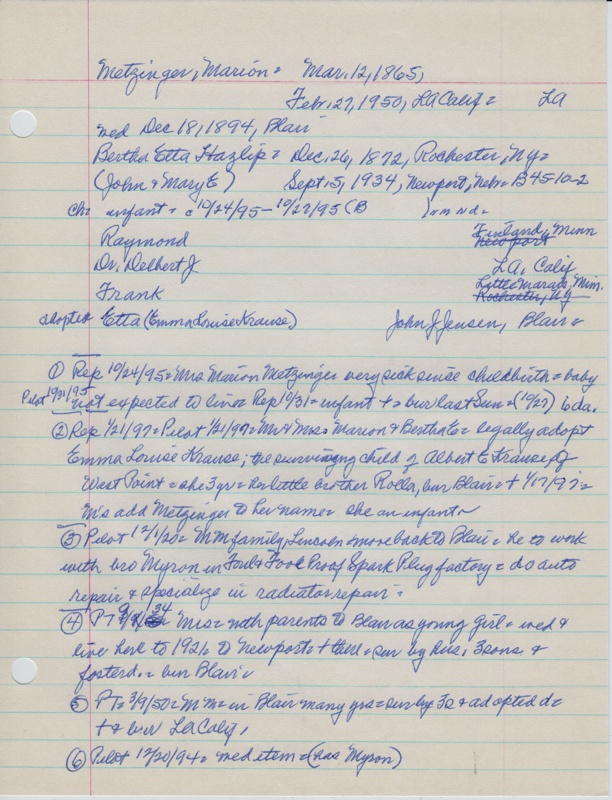 Metzinger, Marion = Mar. 12, 1865,
Febr. 27, 1950, LA Calif = LA
med Dec 18, 1894, Blair
Bertha Etta Hazlip = Dec. 26, 1872, Rochester, Ny =
(John + Mary E) Sept. 5, 1934, Newport, Nebr = B45-10-2
ch: infant = c 10/24/95 - 10/27/95 (B ) = m nd =
Raymond Newport Minn
Dr. Delbert J LA. Calif
Little Marais, Minn.
Frank Rochester, NY
adopted Etta (Emma Louise Krause) John J Jensen, Blair =
① Rep 10/24/95 = Mrs Marion Metzinger very sick since childbirth = baby
Pilot 10/31/95 not expected to live = Rep 10/31 = infant + = bur last Sun = (10/27) 6 da.
② Rep 1/21/97 = Pilot 1/21/97 = Mr + Mrs Marion + Bertha E = legally adopt
Emma Louise Krause; the surviving child of Albert E Krause of
West Point = she 3 yr = her little brother Rolla, bur Blair = + 1/17/97 =
M's add Metzinger to her name = she an infant
③ Pilot 12/1/20 = M m family, Lincoln = move back to Blair = he to work
with bro Myron in Foul + Fool Proof Spark Plug factory = do auto
repair + specialize in radiator repair =
④ PT 9/ 34 Mrs = with parents to Blair as young girl = wed +
live here to 1921 = to Newport = + there = sur by hus, 3 sons +
foster d. = bur Blair =
⑤ PT = 3/9/50 = M m = in Blair many yrs = sur by 3 s + adopted d =
+ + bur La Calif,
⑥ Pilot 12/20/94 = med item = (has Myron)